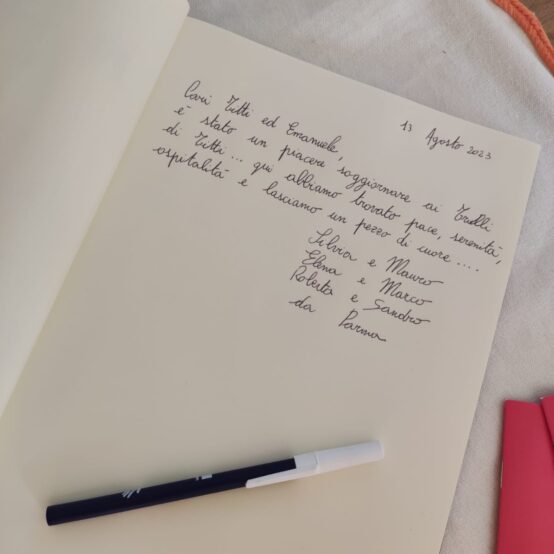 13 Agosto 2023
Cari Titti ed Emanuele,
è stato un piacere soggiornare ai Trulli
di Titti... qui abbiamo trovato pace, serenità,
ospitalità e lasciamo un pezzo di cuore....
Silvia e Mauro
Elena e Marco
Roberta e Sandro
da Parma